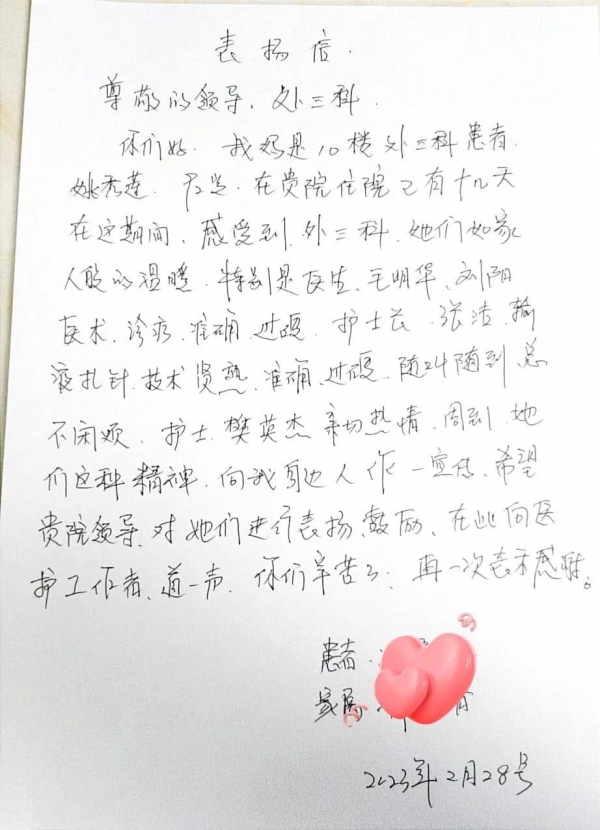 表扬信.
尊敬的领导、外三科.
你们好. 我妈是10楼外三科患者.
姚秀莲. 在贵院住院已有十几天
在这期间、感受到外三科、她们如家
人般的温暖. 特别是医生、毛明华、刘阳
医术、诊疗、准确、过硬. 护士长、张洁、输
液扎针、技术娴熟、准确、过硬. 随叫随到总
不闲烦. 护士樊英杰亲切热情、周到、她
们这种精神、向我身边人作一宣传、希望
贵院领导、对她们进行表扬、鼓励、在此向医
护工作者、道一声、你们辛苦了、再一次表示感谢。
患者:
家属:
2023年2月28号